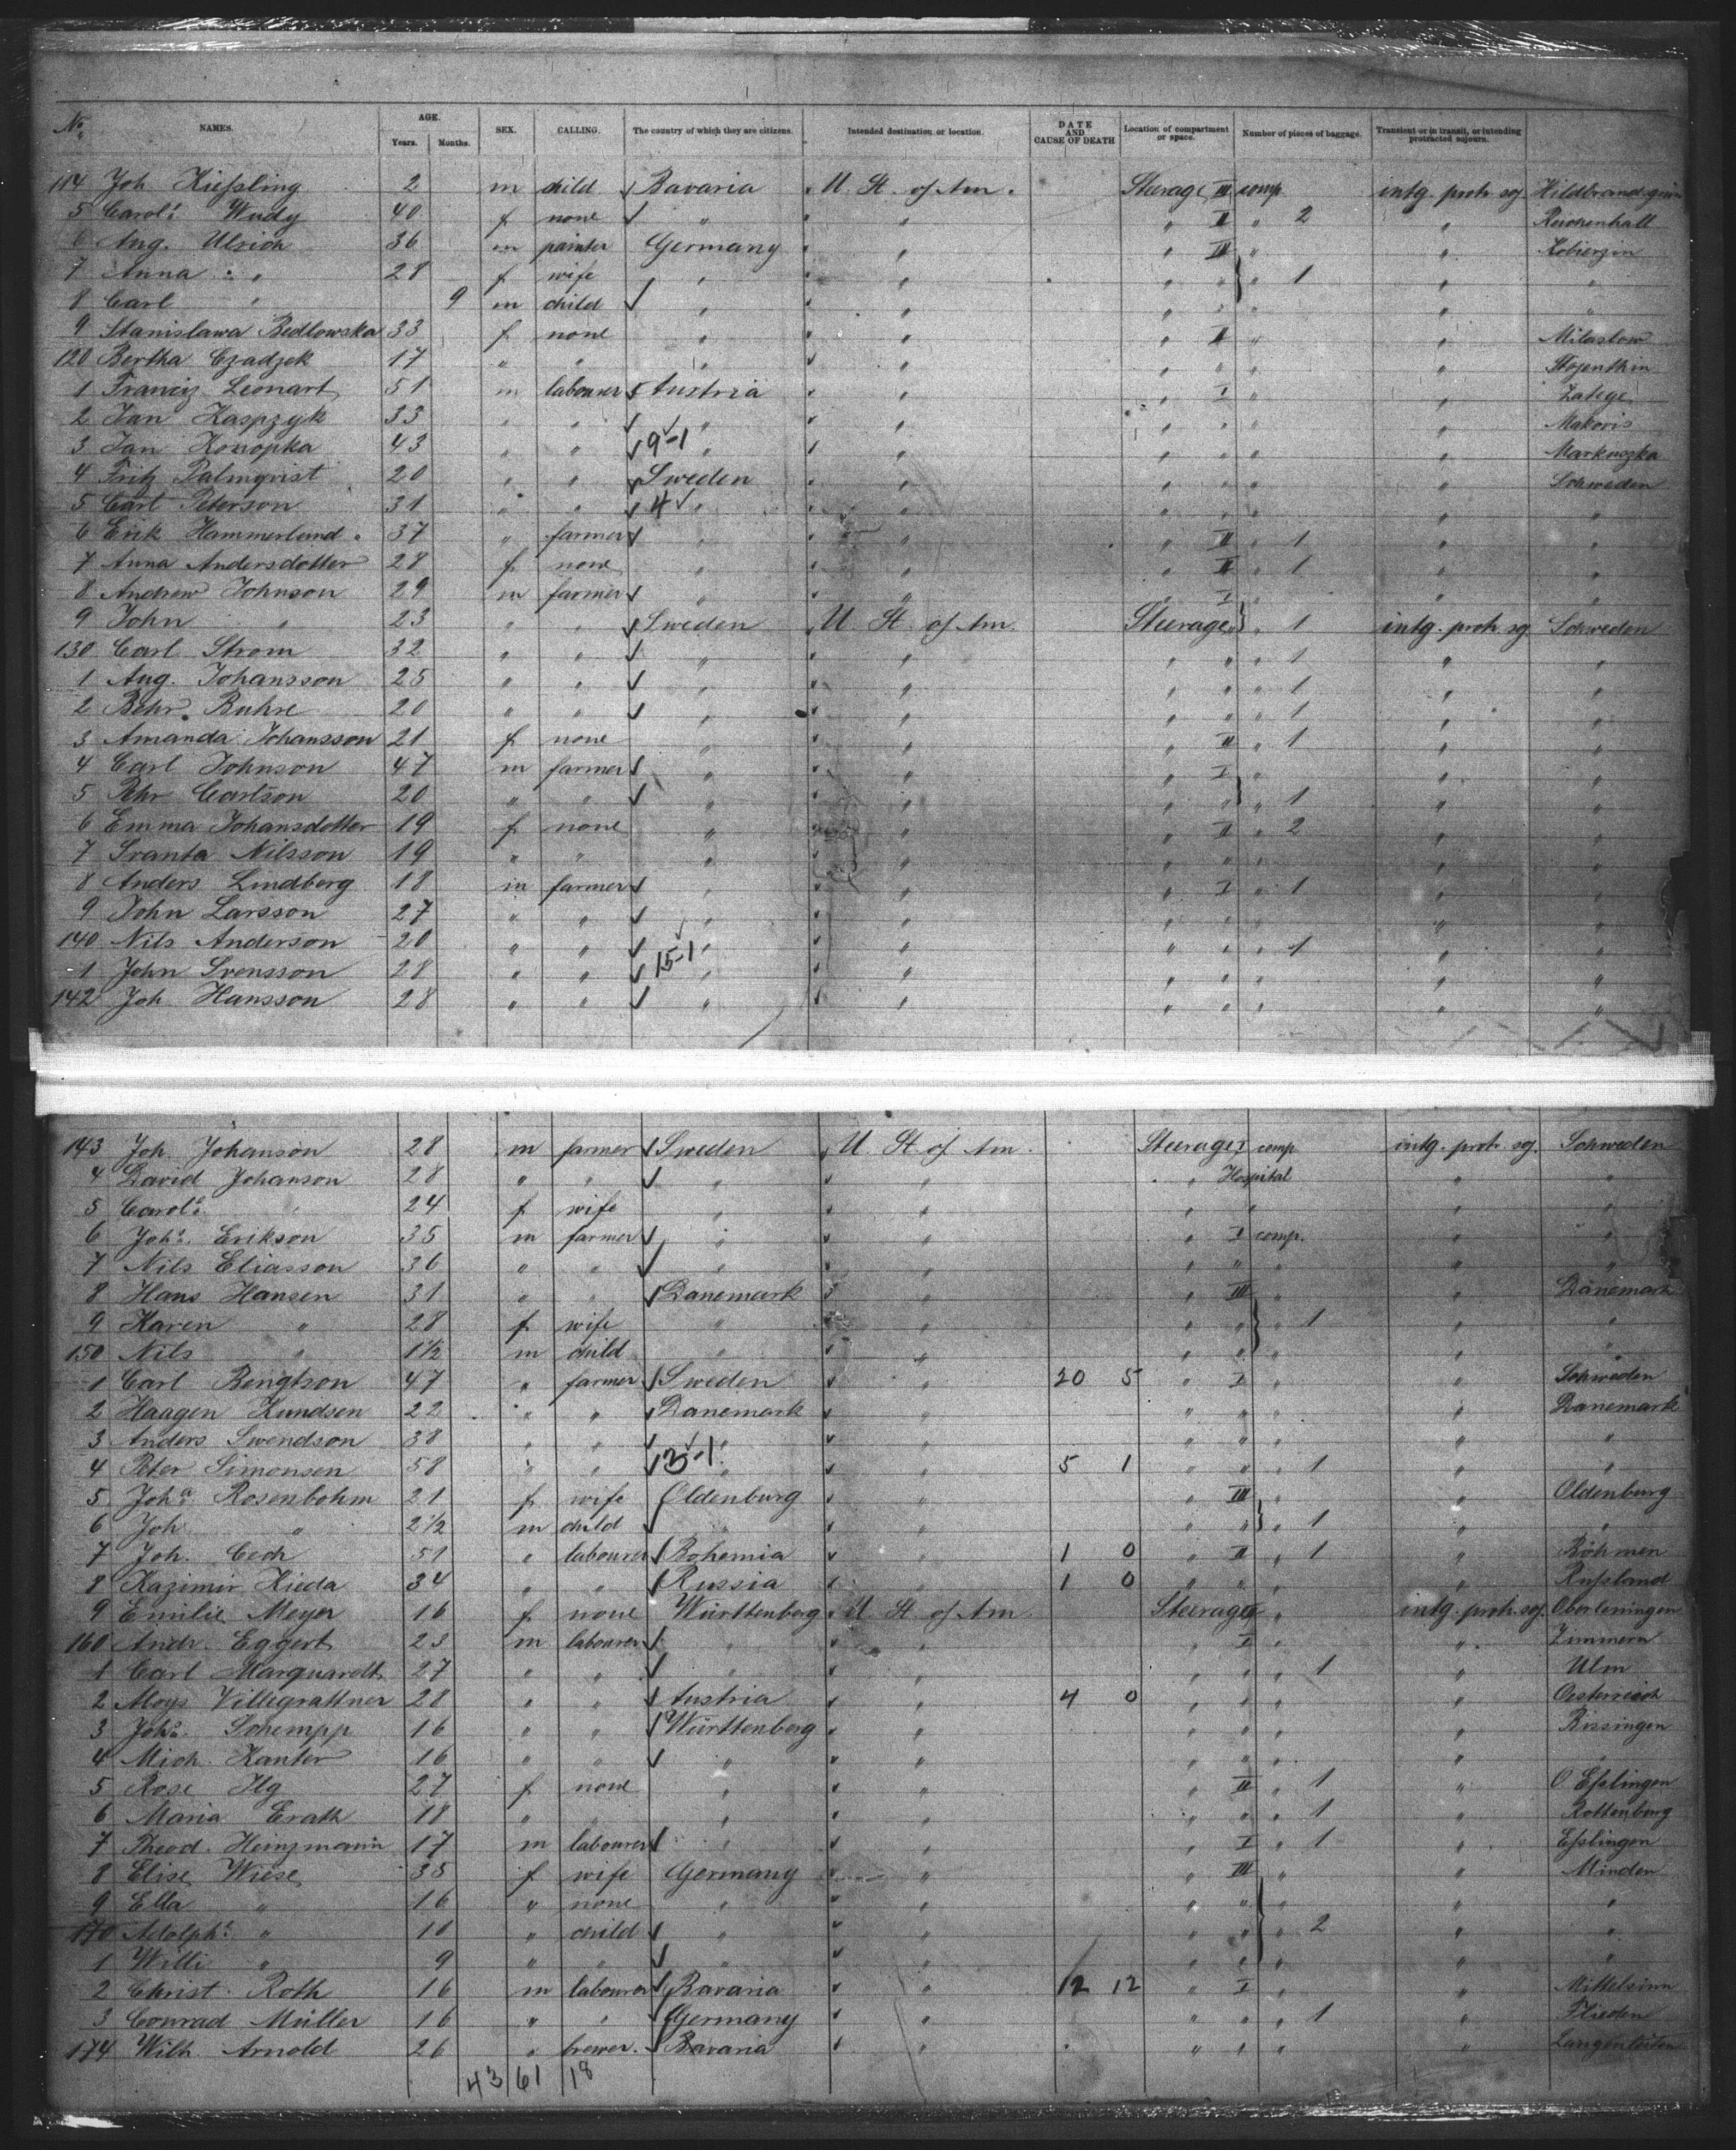 No. NAMES. AGE. Years. Months. SEX. CALLING. The country of which they are citizens. Intended destination or location. DATE AND CAUSE OF DEATH Location of compartment or space. Number of pieces of baggage. Transient or in transit, or intending protracted sojourn.
114 Joh Kießling 2 m child Bavaria U. St. of Am. Steerage III comp. intg. protr. soj
5 Carol. Wudy 40 f none " " " II " 2 " Reichenhall
6 Aug. Ulrich 36 m painter Germany " " III " " Kobierzin
7 Anna " 28 f wife " " " " " 1 " "
8 Carl " 9 m child " " " " " " "
9 Stanislawa Bedlowska 33 f none " " " II " " Miloslow
120 Bertha Czadzek 17 " " " " " " " " Stojenthin
1 Franciz Leonart 51 m labourer Austria " " I " "
2 Jan Kaspzyk 33 " " " " " " " " Makovis
3 Jan Konopka 43 " " 9-1 " " " " " " Markuszka
4 Fritz Palmqvist 20 " " Sweden " " " " " Schweden
5 Carl Peterson 31 " " 4 " " " " " " "
6 Erik Hammerlund 37 " farmer " " " II " 1 " "
7 Anna Andersdotter 28 f none " " " II " 1 " "
8 Andrew Johnson 29 m farmer " " " I " " "
9 John " 23 " " Sweden U. St. of Am. Steerage " " 1 intg. protr. soj Schweden
130 Carl Strom 32 " " " " " " " 1 " "
1 Aug. Johansson 25 " " " " " " " 1 " "
2 Behr. Buhre 20 " " " " " " " 1 " "
3 Amanda Johansson 21 f none " " " II " 1 " "
4 Carl Johnson 47 m farmer " " " I " " "
5 Pehr Carlson 20 " " " " " " " 1 " "
6 Emma Johansdotter 19 f none " " " II " 2 " "
7 Svanta Nilsson 19 " " " " " " " " "
8 Anders Lindberg 18 m farmer " " " I " 1 " "
9 John Larsson 27 " " " " " " " " "
140 Nils Anderson 20 " " " " " " " 1 " "
1 John Svensson 28 " " 15-1 " " " " " " "
142 Joh. Hansson 28 " " " " " " " " "
143 Joh. Johanson 28 m farmer Sweden U. St. of Am. Steerage I comp intg. protr. soj. Schweden
4 David Johanson 28 " " " " " Hospital " "
5 Carol. " 24 f wife " " " " " "
6 Joh. Erikson 35 m farmer " " " I comp. " "
7 Nils Eliasson 36 " " " " " " " " "
8 Hans Hansen 31 " " Danemark " " III " " Danemark
9 Karen " 28 f wife " " " " " 1 " "
150 Nils " 1½ m child " " " " " " "
1 Carl Bengtson 47 " farmer Sweden " 20 5 " I " " Schweden
2 Haagen Kundsen 22 " " Danemark " " " " " Danemark
3 Anders Swendson 38 " " " " " " " " "
4 Peter Simonsen 58 " " 3-1 " " 5 1 " " " 1 " "
5 Joha. Rosenbohm 21 f wife Oldenburg " " III " Oldenburg
6 Joh " 2½ m child " " " " " 1 " "
7 Joh. Cech 51 " labourer Bohemia " 1 0 " II " 1 " Böhmen
8 Kazimir Kieda 34 " " Russia " 1 0 " " " " Rußland
9 Emilie Meyer 16 f none Württenberg U. St. of Am. Steerage " intg. protr. soj. Oberleningen
160 Andr. Eggert 23 m labourer " " " I " " Zimmern
1 Carl Marquardt 27 " " " " " " " 1 " Ulm
2 Aloys Villegrattner 28 " " Austria " 4 0 " " " " Oesterreich
3 Joh. Schempp 16 " " Württenberg " " " " " Bissingen
4 Mich. Kanter 16 " " " " " " " " "
5 Rose Ilg 27 f none " " " II " 1 " O. Eßlingen
6 Maria Erath 18 " " " " " " " 1 " Rottenburg
7 Theod. Heinzmann 17 m labourer " " " I " 1 " Eßlingen
8 Elise Wiese 35 f wife Germany " " III " " Minden
9 Ella " 16 " none " " " " " " "
170 Adolph. " 10 " child " " " " " 2 " "
1 Willi " 9 " " " " " " " " "
2 Christ. Roth 16 m labourer Bavaria " 12 12 " I " " Mittelsinn
3 Conrad Müller 16 " " Germany " " " " 1 " Flieden
174 Wilh. Arnold 26 " brewer. Bavaria " " " " "
43 61 18